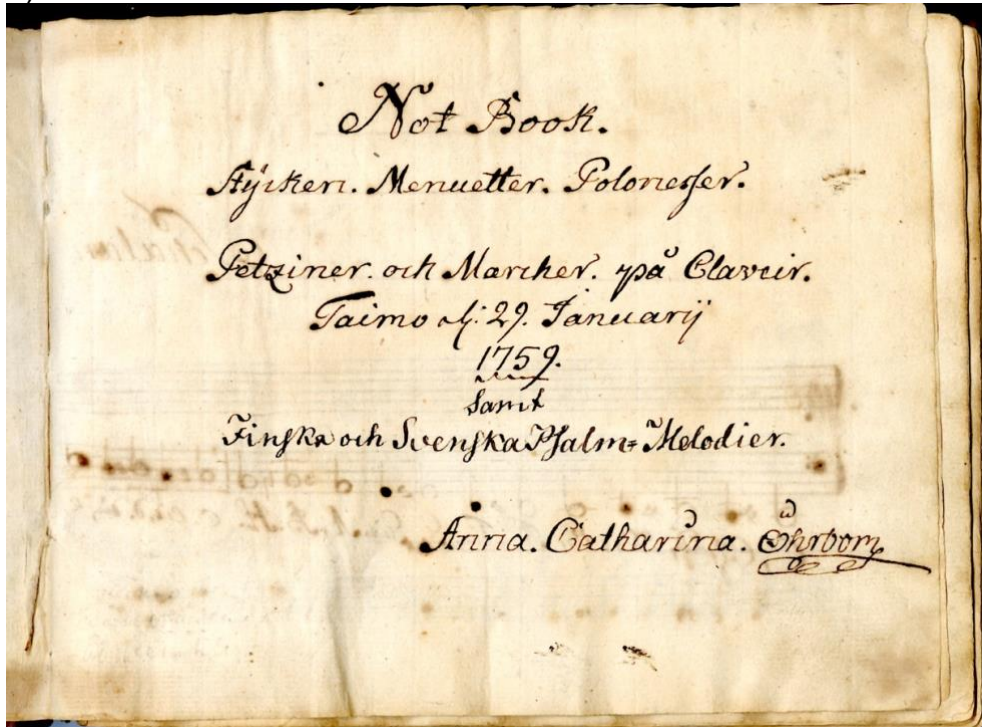 Not Book.
Stÿcken. Menuetter. Polonesser.
och Marcher. på Claveir.
Taimo 29. Januarij
1759.
Samt
Finska och Svenska Psalm= Melodier.
Anna. Catharina.